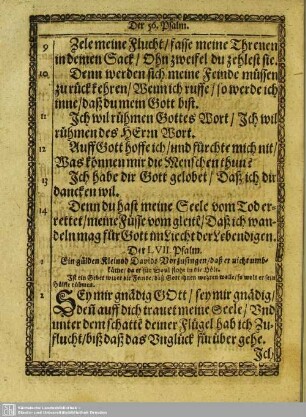 Der 56. Psalm.
9 Zele meine Flucht/ fasse meine Threnen
in deinen Sack/ Ohn zweifel du zehlest sie.
10 Denn werden sich meine Feinde müssen
zu rück kehren/ Wenn ich ruffe/ so werde ich
inne/ daß du mein Gott bist.
11 Ich wil rühmen Gottes Wort/ Ich wil
rühmen des HErrn Wort.
12 Auff Gott hoffe ich/ und fürchte mich nit/
Was können mir die Menschen thun?
13 Ich habe dir Gott gelobet/ Daß ich dir
dancken wil.
14 Denn du hast meine Seele vom Tod er-
rettet/ meine Füsse vom gleitẽ/ Daß ich wan-
deln mag für Gott im Liecht der Lebendigen.
Der LVII. Psalm.
1 Ein gülden Kleinod Davids Vorzusingen/ daß er nicht umb-
käme/ da er für Saul flohe in die Höle.
Ist ein Gebet wider die
Hülffe rühmen.
2 SEy mir gnädig GOtt/ sey mir gnädig/
Deñ auff dich trauet meine Seele/ Vnd
unter dem schattẽ deiner Flügel hab ich Zu-
flucht/ biß daß das Vnglück für über gehe.
Ich